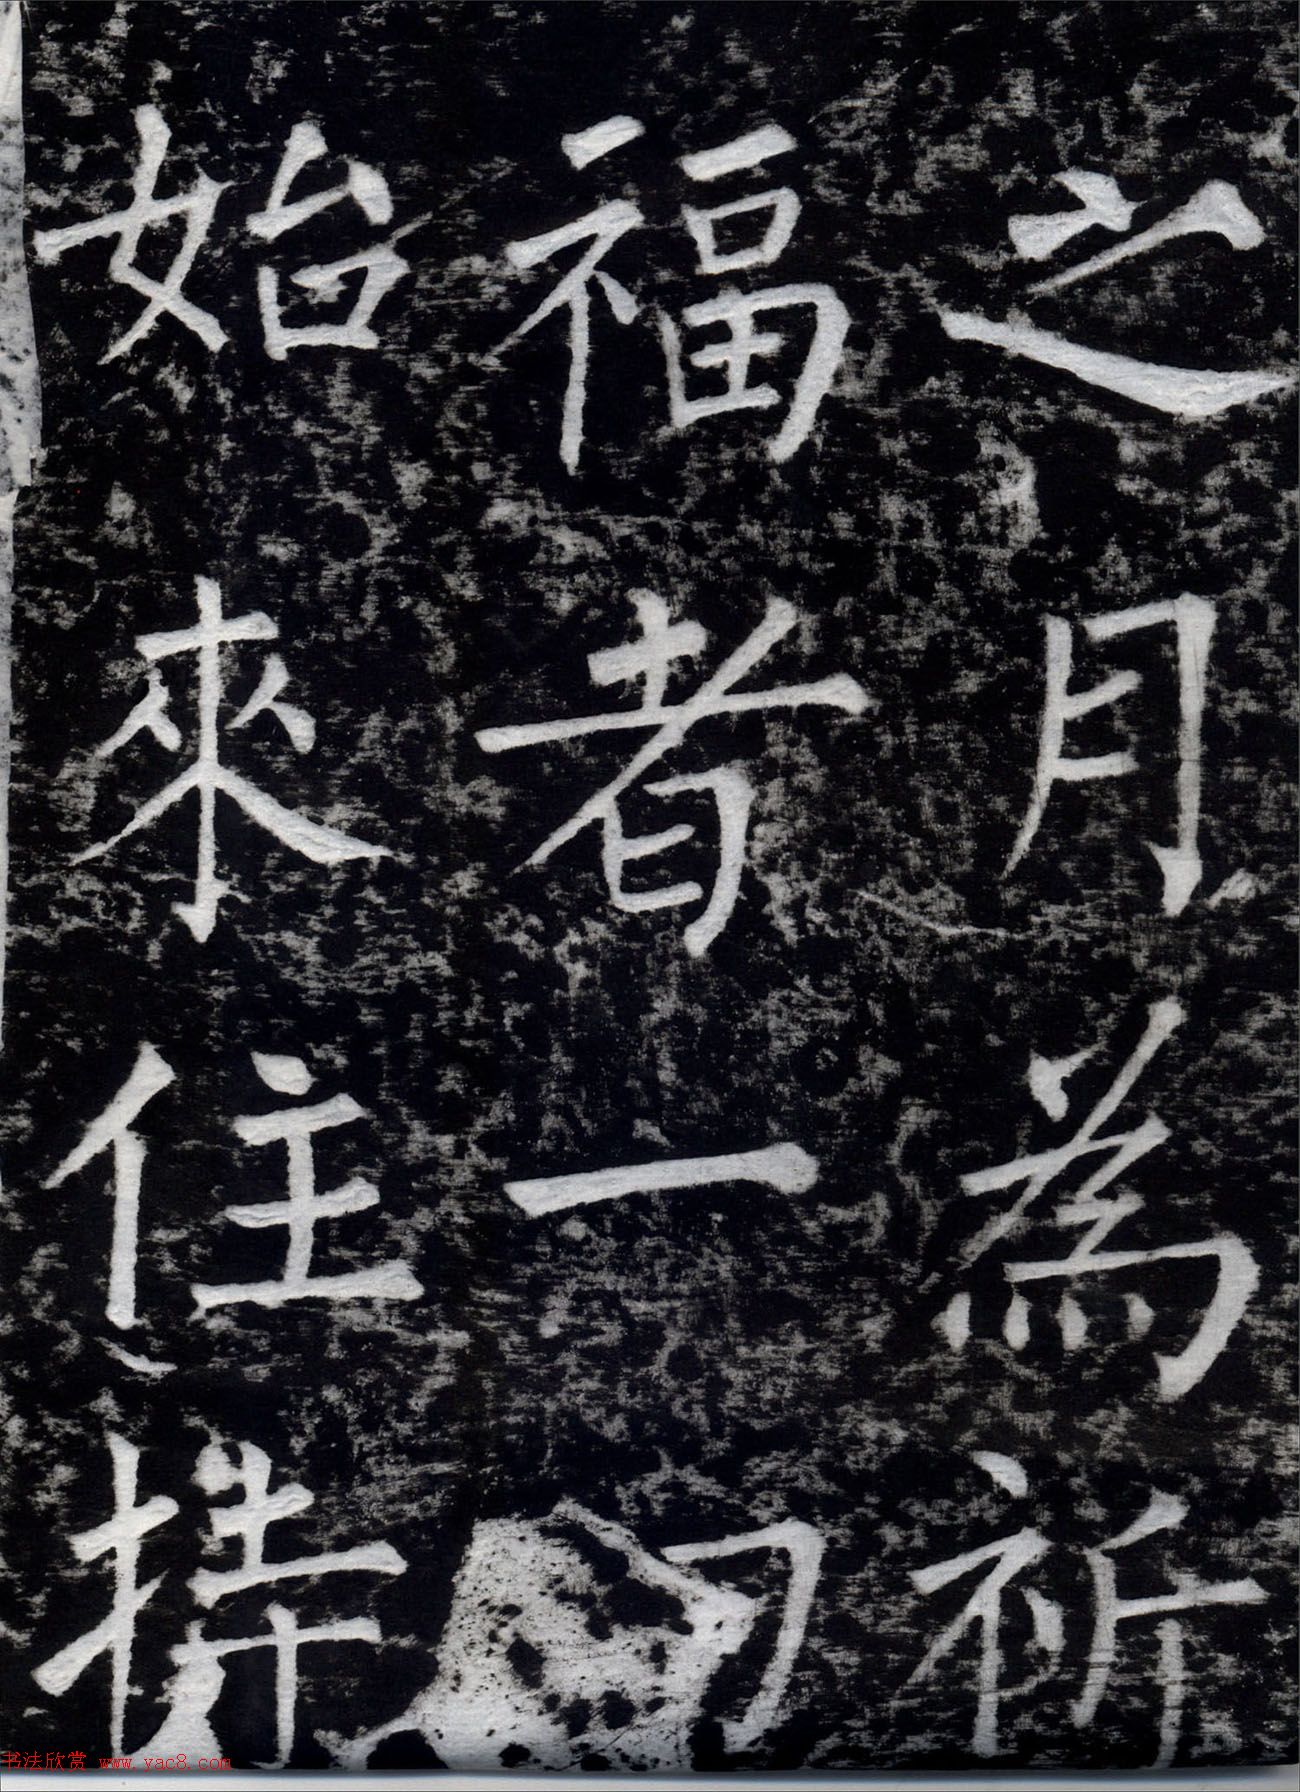 之月為祈
福者一
始來住持
书法欣赏 www.yac8.com